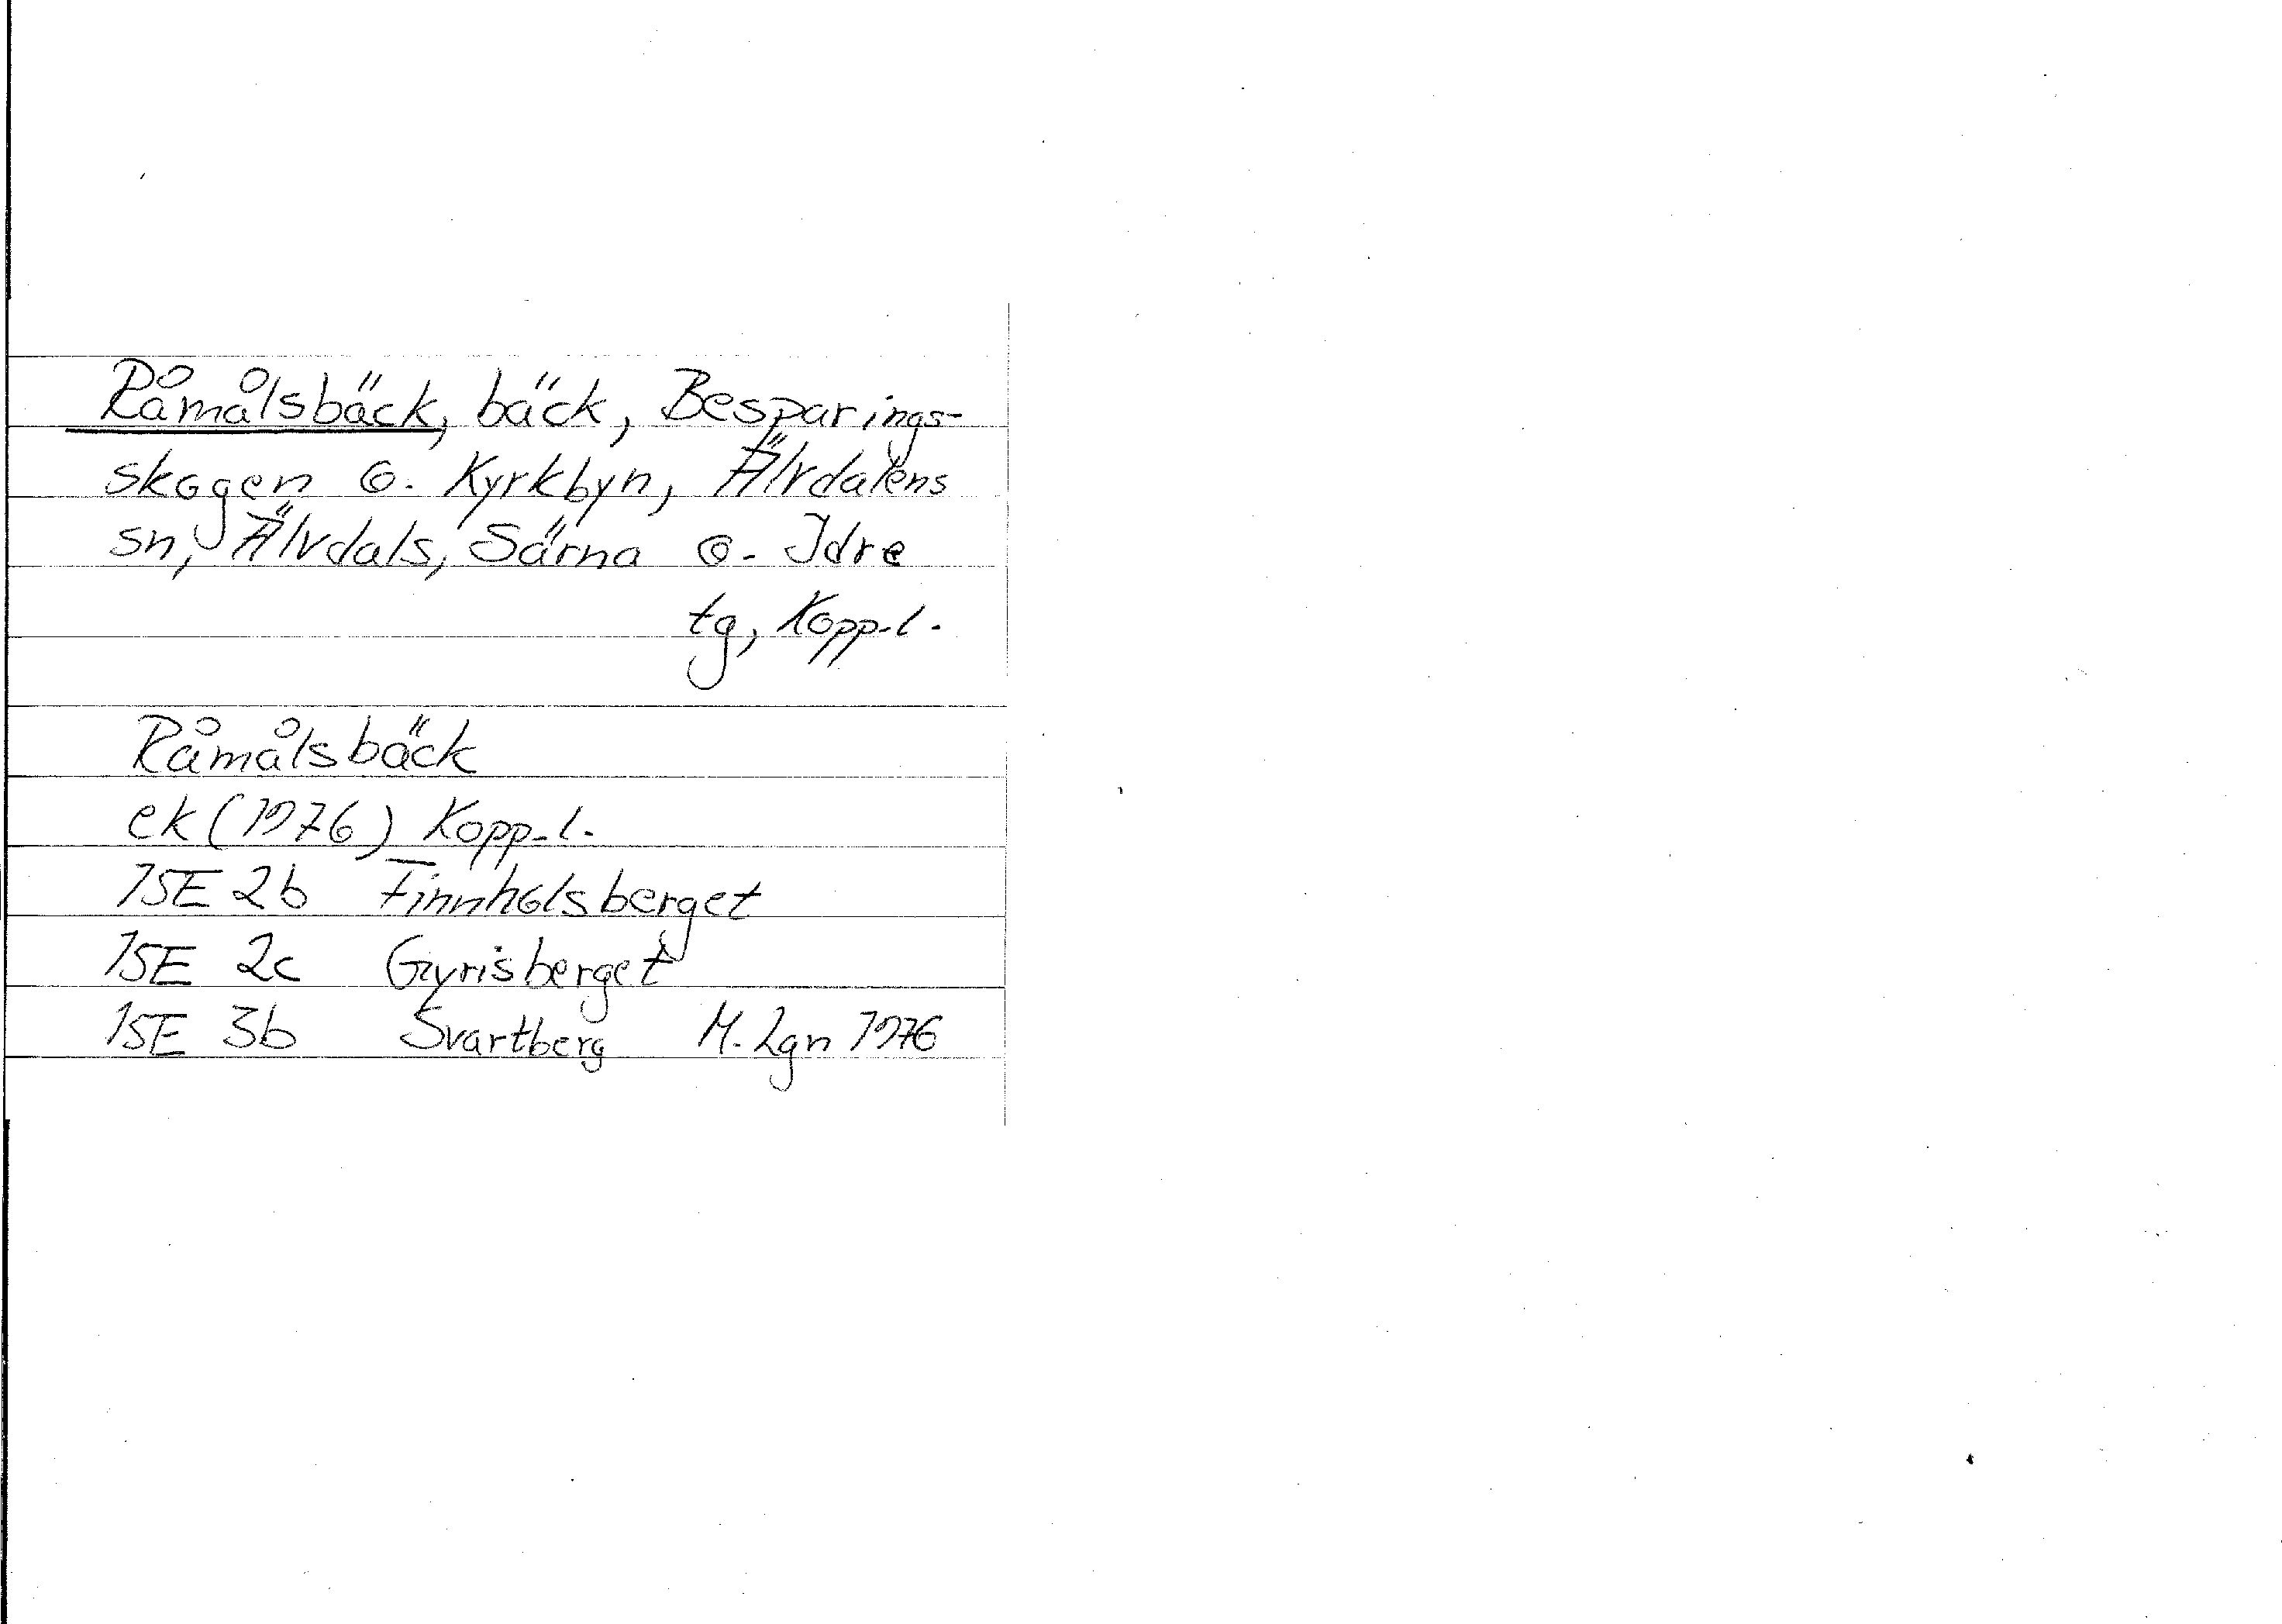 Råmålsbäck, bäck, Besparings-
skogen o. Kyrkbyn, Älvdalens
sn, Älvdals, Särna o. Idre
tg, Kopp.l.
Råmålsbäck
ek (1976) Kopp.l.
15E 2b Finnholsberget
15E 2c Gyrisberget
15E 3b Svartberg M. Lgn 1976